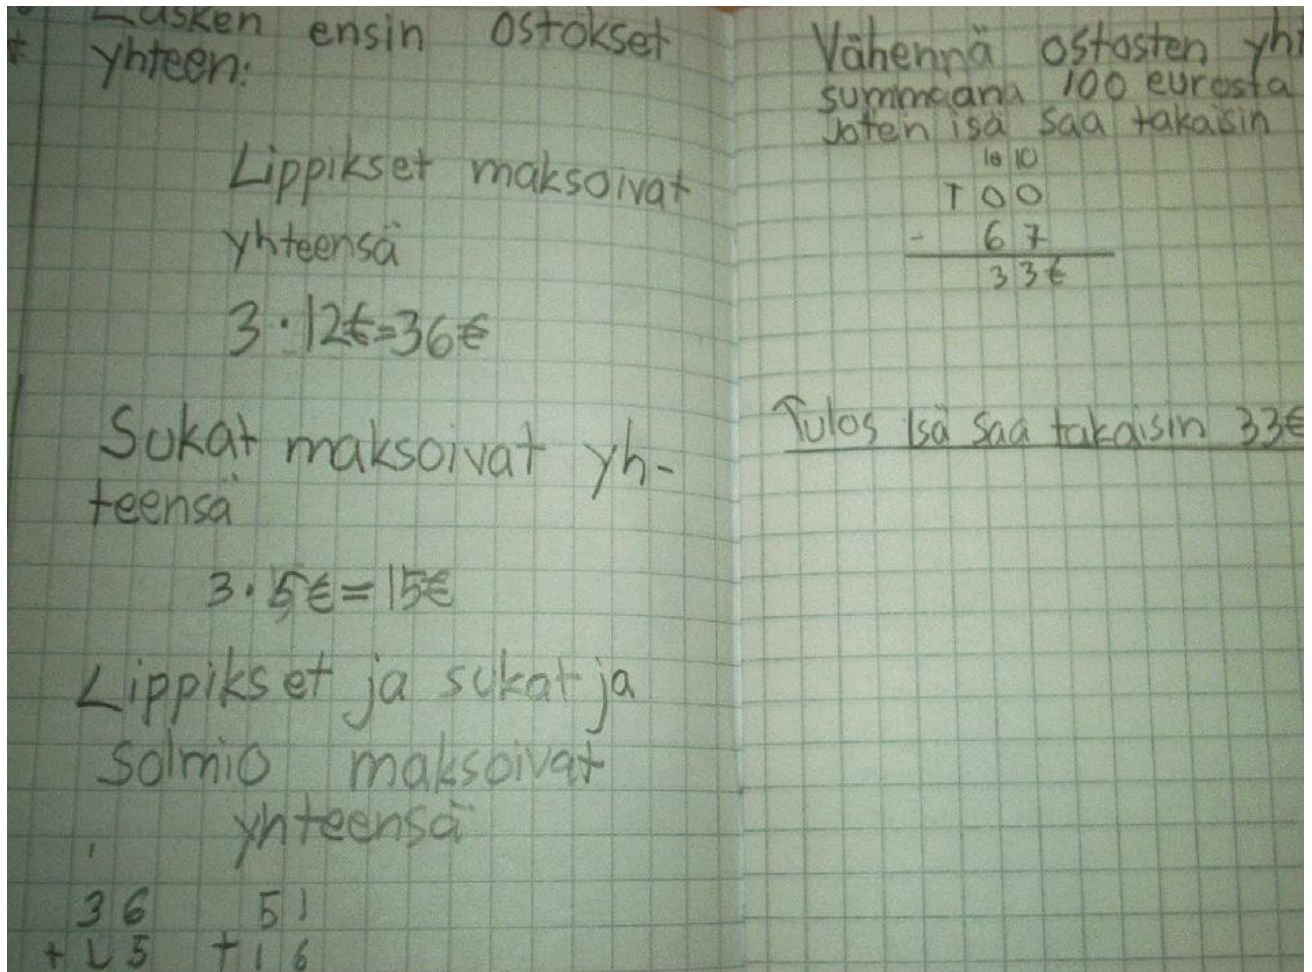 Lasken ensin ostokset
yhteen:
Lippikset maksoivat
yhteensä
3 · 12€=36€
Sukat maksoivat yh-
teensä
3 · 5€=15€
Lippikset ja sukat ja
Solmio maksoivat
yhteensä
1
36 51
+15 +16
Vähennä ostosten yht
summaana 100 eurosta
Joten isä saa takaisin
10 10
100
- 67
33€
Tulos Isä saa takaisin 33€